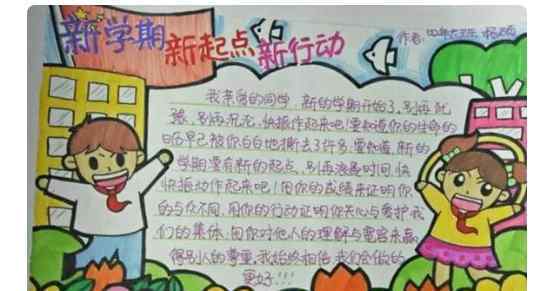 新学期
新起点新行动
作者:四年
我亲爱的同学,新的学期开始了,别再犹
豫,别再沉沦,快振作起来吧!要知道你的生命的
日历早已被你白白地撕去了许多,要知道,新的
学期要有新的起点,别再浪费时间,快
快振动作起来吧!用你的成绩来证明你
的与众不同,用你的行动证明你关心与爱护我
们的集体,向你对他人的理解与宽容来赢
得别人的尊重。我始终相信,我们会做的
更好!!!